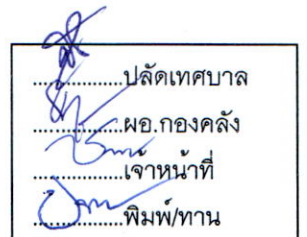 ....................ปลัดเทศบาล
....................ผอ.กองคลัง
....................เจ้าหน้าที่
....................พิมพ์/ทาน